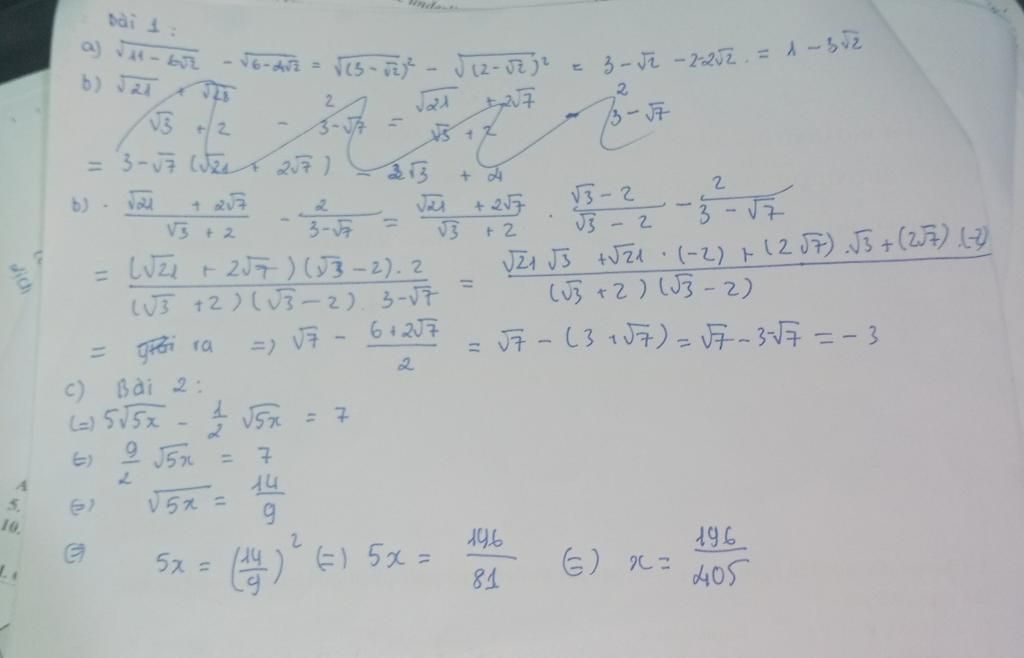 Bài 1 :
a) √11 - 6√2 - √6-4√2 = √(3-√2)² - √(2-√2)² = 3 - √2 - 2-2√2 . = 1 - 3√2
b) √21 + √28 / √3 + 2 - 2 / 3-√7 = √21 + 2√7 / √3 + 2 - 2 / 3 - √7
= 3-√7 (√21 + 2√7) - 2√3 + 4
b) . √21 + 2√7 / √3 + 2 - 2 / 3-√7 = √21 + 2√7 / √3 + 2 . √3 - 2 / √3 - 2 - 2 / 3 - √7
= (√21 + 2√7)(√3-2). 2 / (√3 +2)(√3-2). 3-√7 = √21 √3 + √21 . (-2) + (2√7).√3 + (2√7).(-2) / (√3 +2)(√3-2)
= ra => √7 - 6+2√7 / 2 = √7 - (3+√7) = √7 - 3-√7 = -3
c) Bài 2 :
(=) 5√5x - 1/2 √5x = 7
(=) 9/2 √5x = 7
(=) √5x = 14/9
(=) 5x = (14/9)² (=) 5x = 196/81 (=) x = 196/405
A
5.
10.